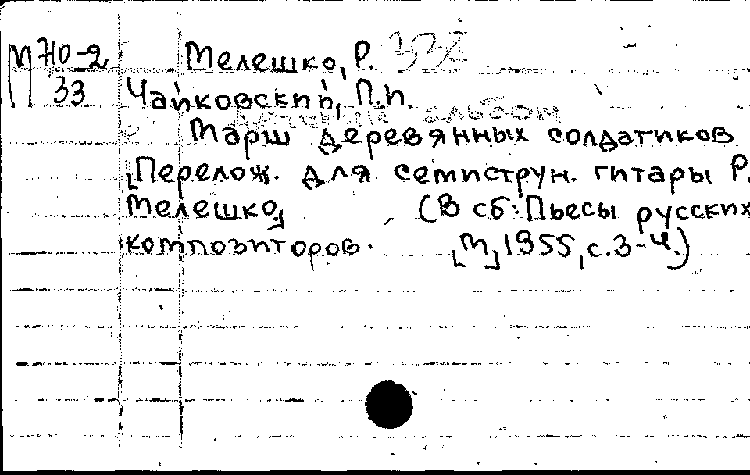 М 710-2 Мелешко, Р.
33 Чайковский, П.И.
Детский альбом
Марш деревянных солдатиков
[Перелож. для семиструн. гитары Р.
Мелешко] (В сб.: Пьесы русских
композиторов. [М], 1955, с.3-4.)